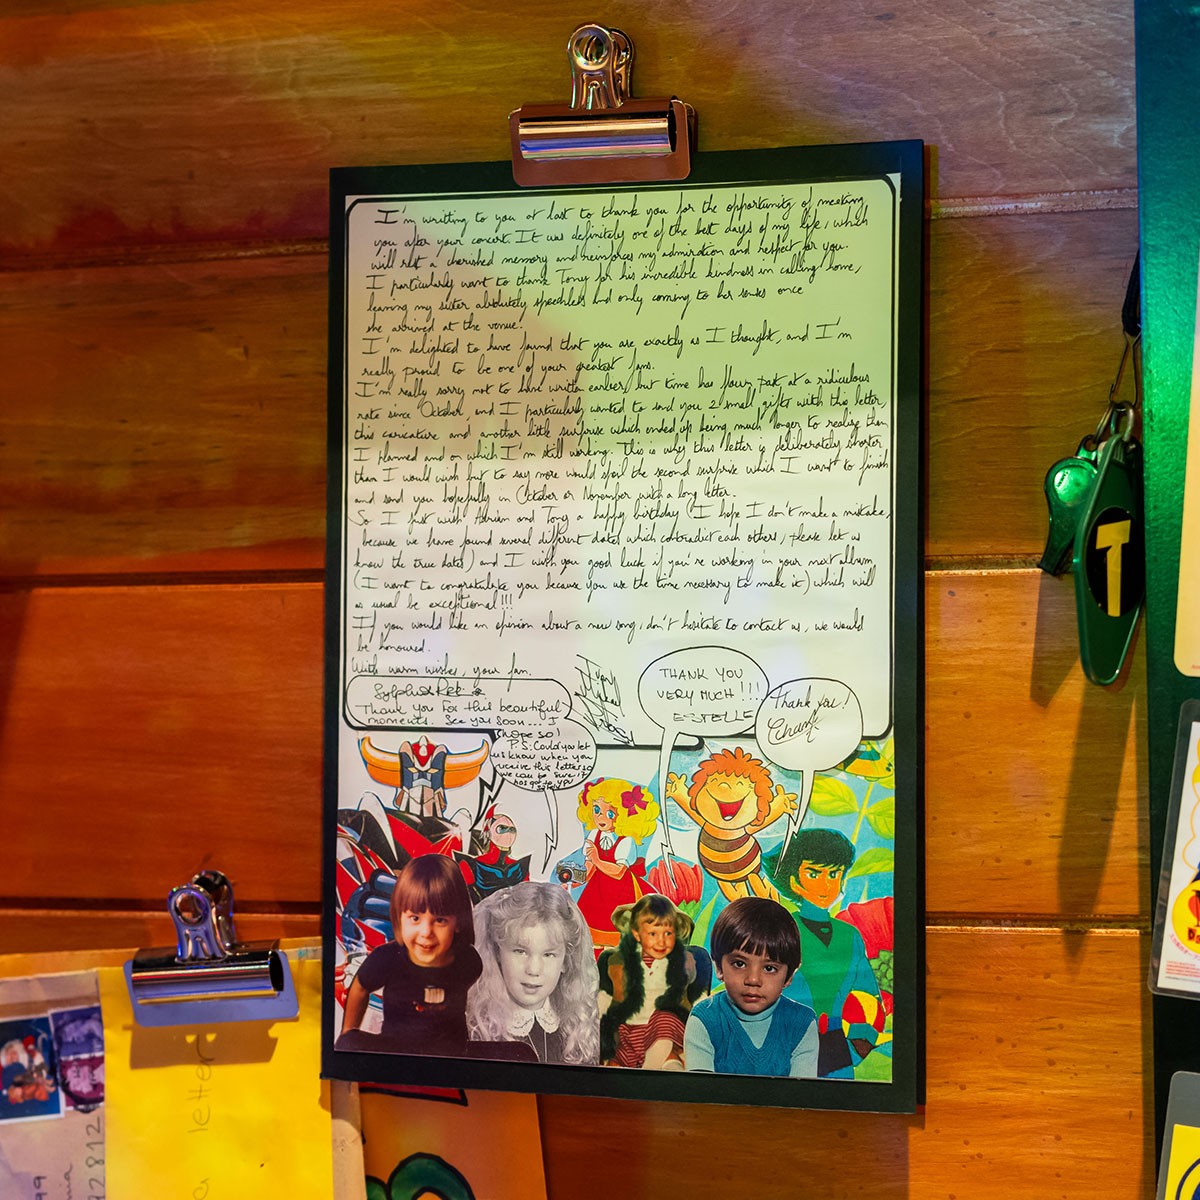 I'm writting to you at last to thank you for the opportunity of meeting
you after your concert. It was definitely one of the best days of my life, which
will rest a cherished memory and reinforces my admiration and respect for you.
I particularly want to thank Tony for his incredible kindness in calling home,
leaving my sister absolutely speechless and only coming to her senses once
she arrived at the venue.
I'm delighted to have found that you are exactly as I thought, and I'm
really proud to be one of your greatest fans.
I'm really sorry not to have written earlier, but time has flown past at a ridiculous
rate since October, and I particularly wanted to send you 2 small gifts with this letter,
this caricature and another little surprise which ended up being much longer to realize than
I planned and on which I'm still working. This is why this letter is deliberately shorter
than I would wish but to say more would spoil the second surprise which I want to finish
and send you hopefully in October or November with a long letter.
So I just wish Adrian and Tony a happy birthday (I hope I don't make a mistake,
because we have found several different dates which contradict each others, please let us
know the true dates) and I wish you good luck if you're working in your next album
(I want to congratulate you because you use the time necessary to make it) which will
as usual be exceptional!!!
If you would like an opinion about a new song, don't hesitate to contact us, we would
be honoured.
With warm wishes, your fan.
THANK YOU
VERY MUCH!!!
ESTELLE
Thank you!
Thank you for this beautiful
moments. See you soon... I
hope so!
P.S: Could you let
us know when you
receive this letter so
we can be sure it
has got to you
safely
T
a letter
99
42812